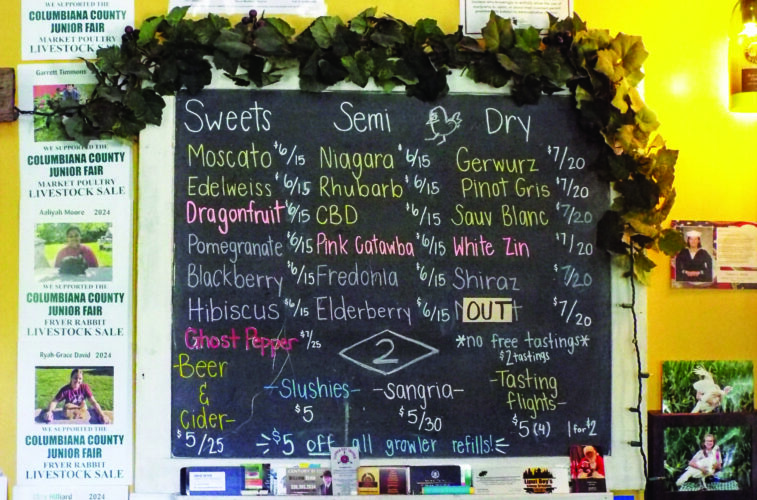 WE SUPPORTED THE
COLUMBIANA COUNTY
JUNIOR FAIR
MARKET POULTRY
LIVESTOCK SALE
Garrett Timmons
WE SUPPORTED THE
COLUMBIANA COUNTY
JUNIOR FAIR
MARKET POULTRY
LIVESTOCK SALE
Aaliyah Moore 2024
WE SUPPORTED THE
COLUMBIANA COUNTY
JUNIOR FAIR
FRYER RABBIT
LIVESTOCK SALE
Ryah-Grace David 2024
WE SUPPORTED THE
COLUMBIANA COUNTY
JUNIOR FAIR
FRYER RABBIT
LIVESTOCK SALE
Hilliard 2024
Sweets
Moscato $6/15
Edelweiss $6/15
Dragonfruit $6/15
Pomegranate $6/15
Blackberry $6/15
Hibiscus $6/15
Ghost Pepper $7/25
Semi
Niagara $6/15
Rhubarb $6/15
CBD $6/15
Pink Catawba $6/15
Fredonia $6/15
Elderberry $6/15
Dry
Gerwurz $7/20
Pinot Gris $7/20
Sauv Blanc $7/20
White Zin $7/20
Shiraz $7/20
OUT $7/20
*no free tastings*
$2 tastings
2
-Beer
&
Cider-
$5/25
-Slushies-
$5
-sangria-
$5/30
-Tasting
flights-
$5 (4) 1 for $2
$5 off all growler refills!